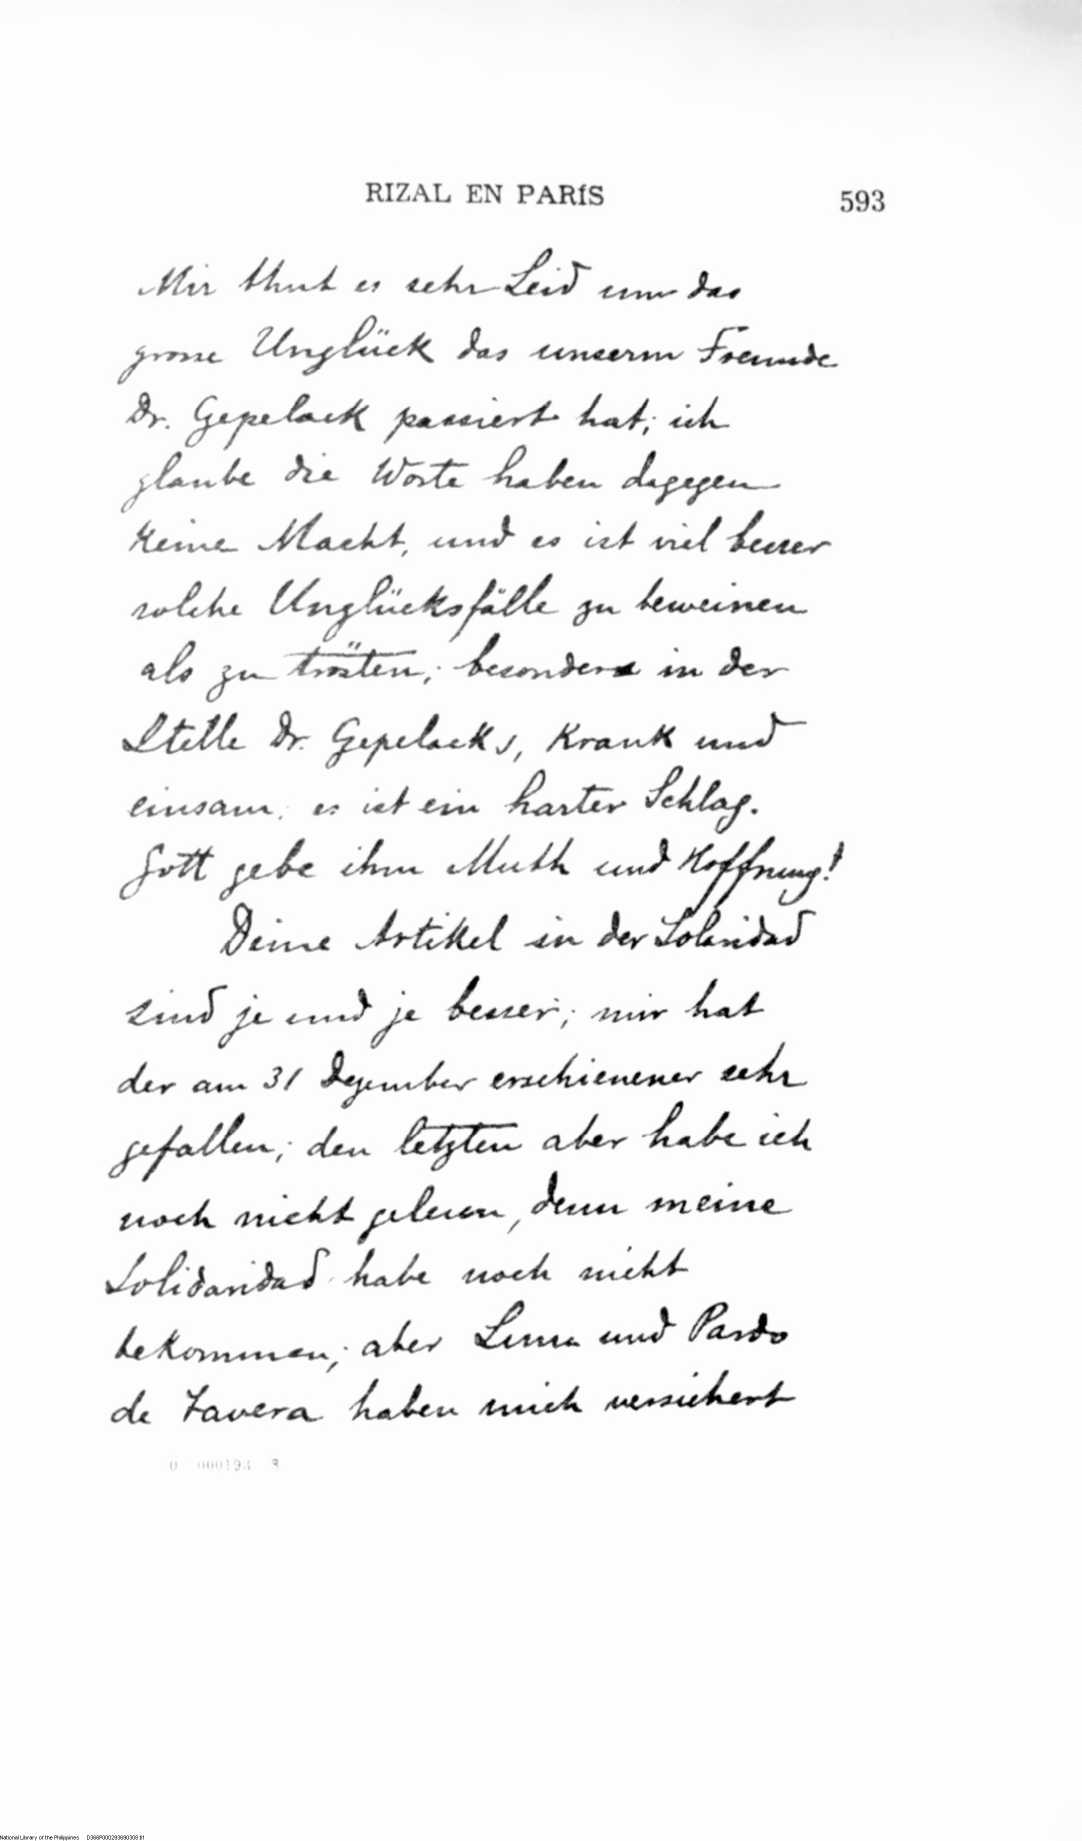 RIZAL EN PARÍS 593
Mir thut es sehr Leid um das
grosse Unglück das unserm Freunde
Dr. Gepelack passiert hat; ich
glaube die Worte haben dagegen
keine Macht, und es ist viel besser
solche Unglücksfälle zu beweinen
als zu trösten; besonders in der
Stelle Dr. Gepelacks, krank und
einsam; es ist ein harter Schlag.
Gott gebe ihm Muth und Hoffnung!
Deine Artikel in der Solaridad
sind je und je besser; mir hat
der am 31 Dezember erschienener sehr
gefallen; den letzten aber habe ich
noch nicht gelesen, denn meine
Solidaridad habe noch nicht
bekommen; aber Luna und Pardo
de Tavera haben mich versichert
National Library of the Philippines